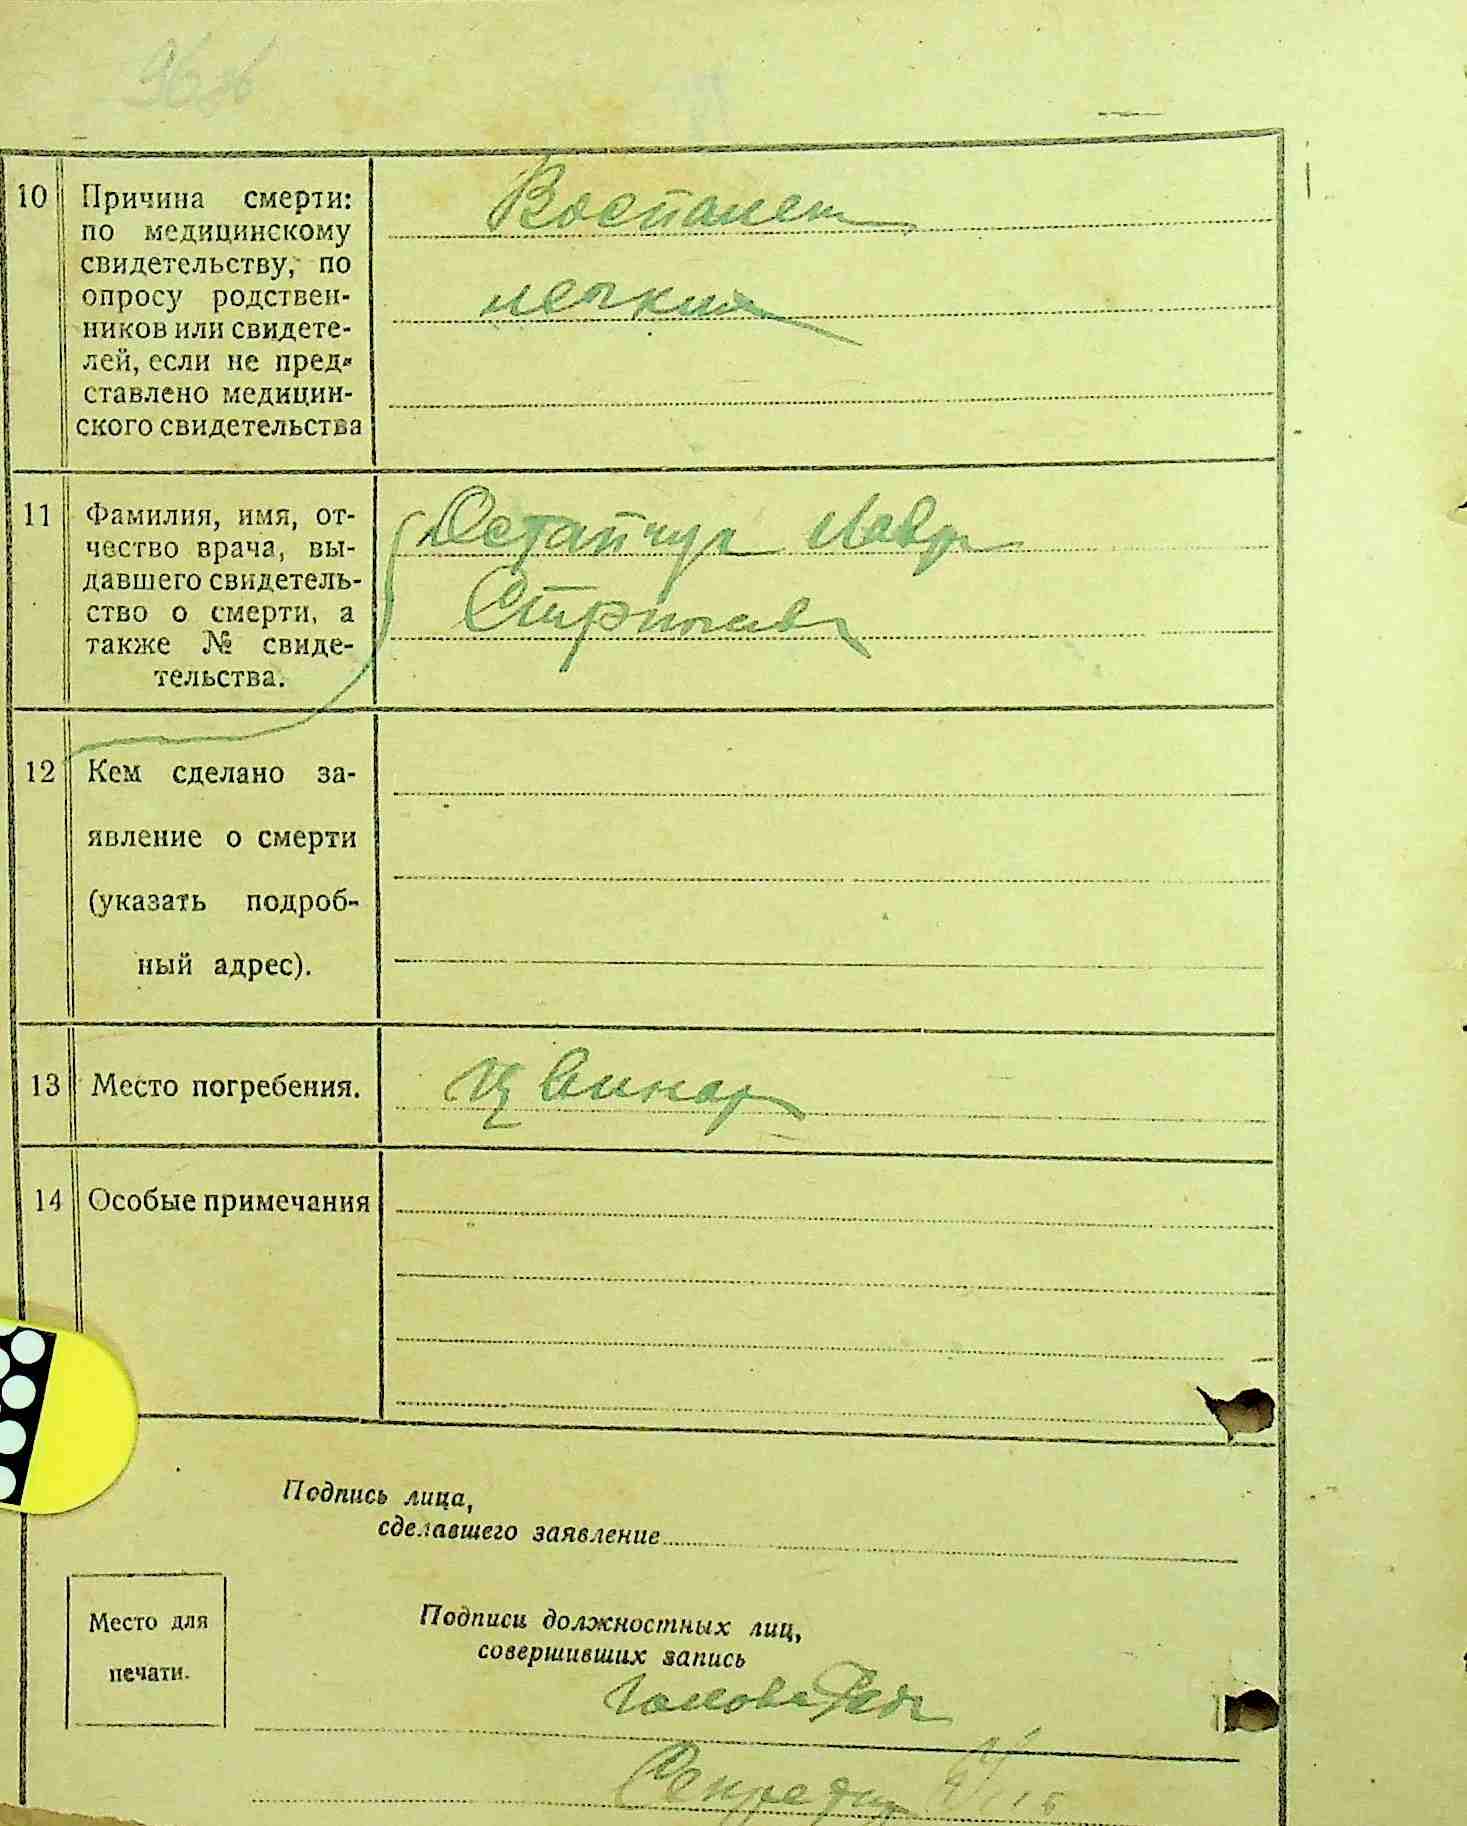 10 Причина смерти:
по медицинскому
свидетельству, по
опросу родствен-
ников или свидете-
лей, если не пред-
ставлено медицин-
ского свидетельства
Воспален
легких
11 Фамилия, имя, от-
чество врача, вы-
давшего свидетель-
ство о смерти, а
также № свиде-
тельства.
Остапчук Лавр
12 Кем сделано за-
явление о смерти
(указать подроб-
ный адрес).
13 Место погребения.
Цвинтар
14 Особые примечания
Подпись лица,
сделавшего заявление
Место для
печати.
Подписи должностных лиц,
совершивших запись
Голова
Секретар